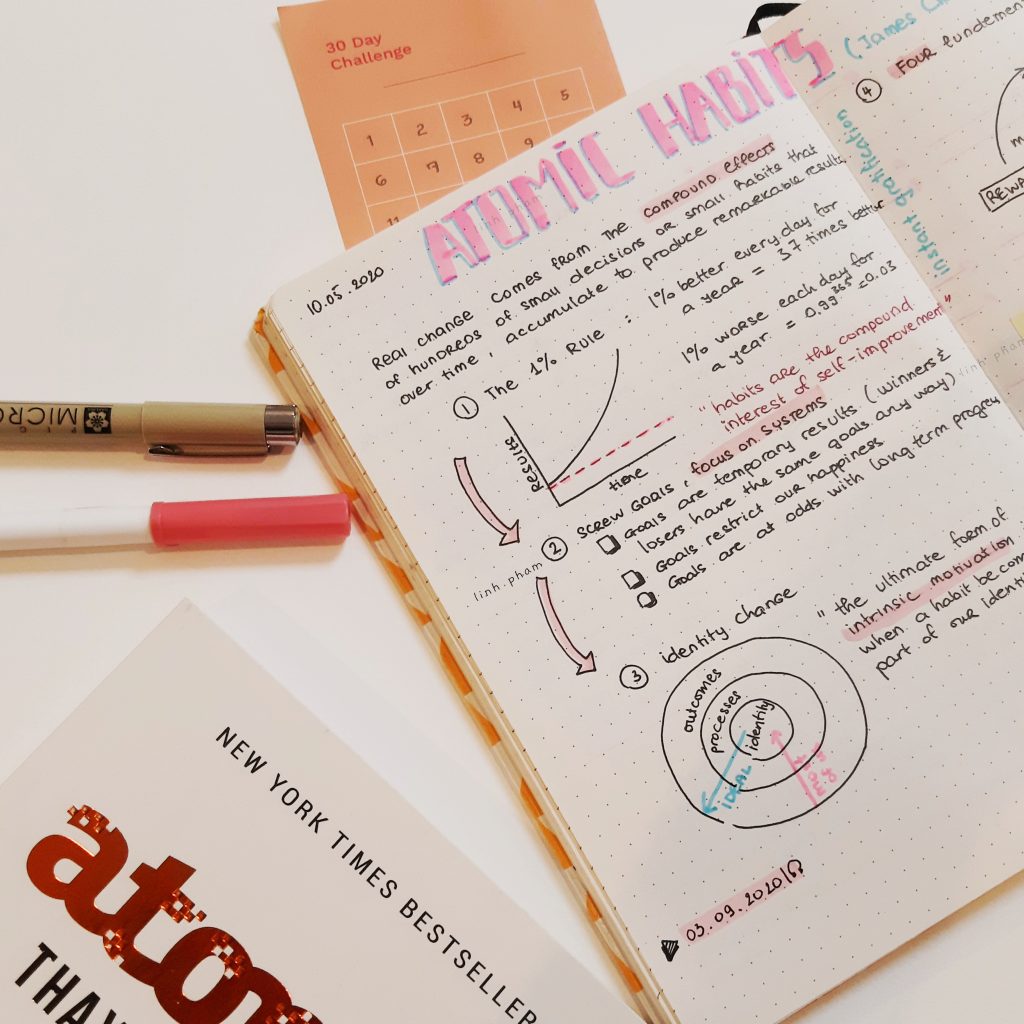 30 Day
Challenge
1 2 3 4 5
6 7 8 9
11
ATOMIC HABITS
(James
10.05.2020
Real change comes from the compound effects
of hundreds of small decisions or small habits that
over time, accumulate to produce remarkable results
① The 1% Rule : 1% better every day for
a year = 37 times better
1% worse each day for
a year = 0.99³⁶⁵ = 0.03
Results
time
"habits are the compound
interest of self-improvement"
② Screw goals, focus on systems
Goals are temporary results (winners &
losers have the same goals any way)
Goals restrict our happiness
Goals are at odds with long-term
linh.pham
③ identity change
outcomes
processes
identity
IDEAL
"the ultimate form of
intrinsic motivation
when a habit
part of our
03.09.2020
④ Four
instant gratification
linh.pham
MICRO
NEW YORK TIMES BESTSELLER